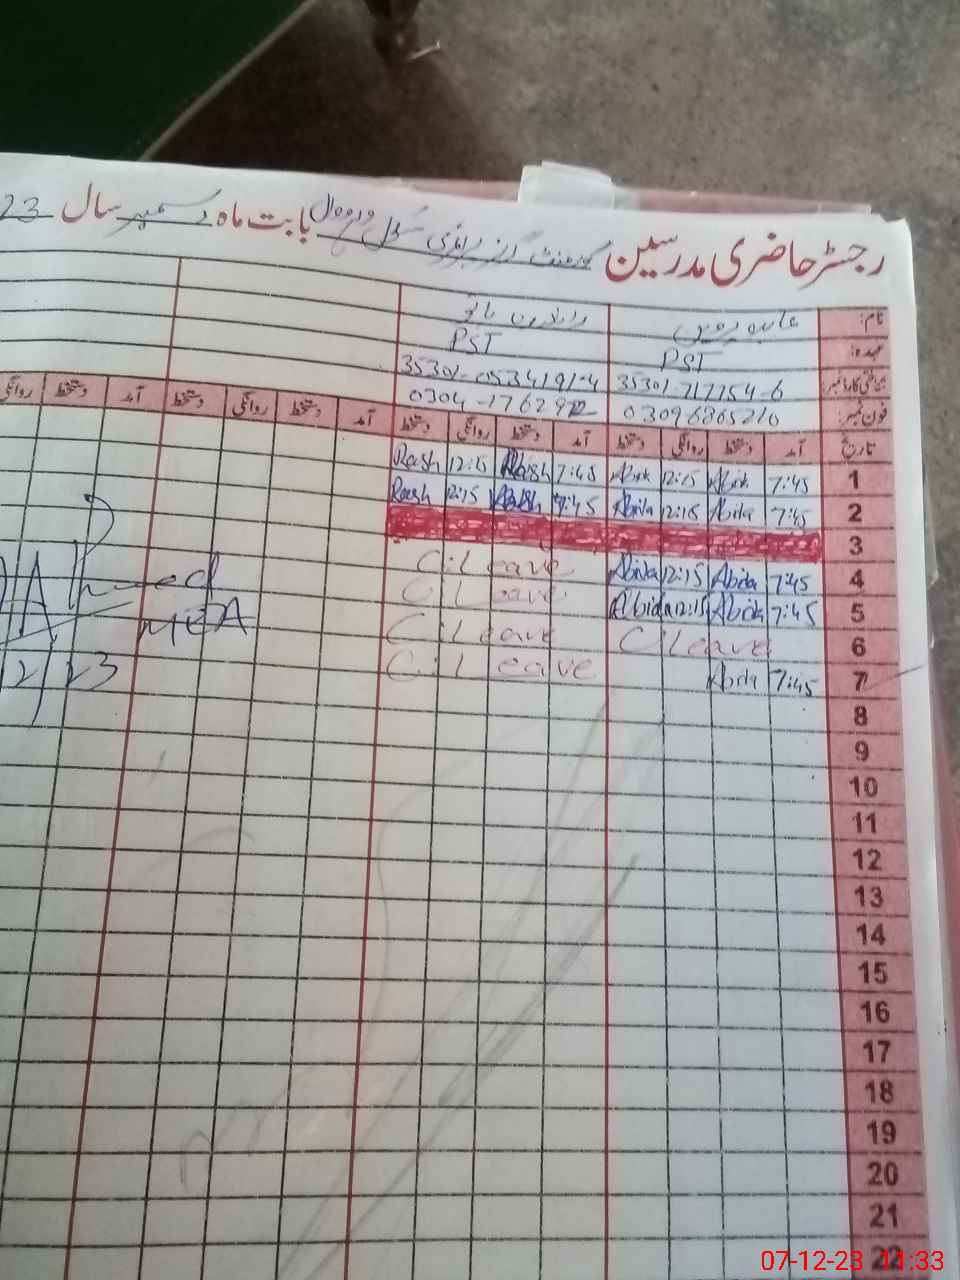 رجسٹر حاضری مدرسین گورنمنٹ گرلز پرائمری سکول بابت ماہ دسمبر سال 23
نام: عابدہ پروین
عہدہ: PST PST
شناختی کارڈ نمبر: 35301-0534191-4
فون نمبر: 03096865210
تاریخ آمد دستخط روانگی دستخط آمد دستخط روانگی دستخط آمد دستخط روانگی دستخط آمد دستخط روانگی
1 7:45 Abida 12:15 Abida 7:45 Rash 12:15 Rash
2 7:45 Abida 12:15 Abida 7:45 Rash 12:15 Rash
3
4 7:45 Abida 12:15 Abida C.Leave
5 7:45 Abida 12:15 Abida C.Leave
6 C.Leave C.Leave
7 7:45 Abida C.Leave
8
9
10
11
12
13
14
15
16
17
18
19
20
21
22
07-12-23 11:33